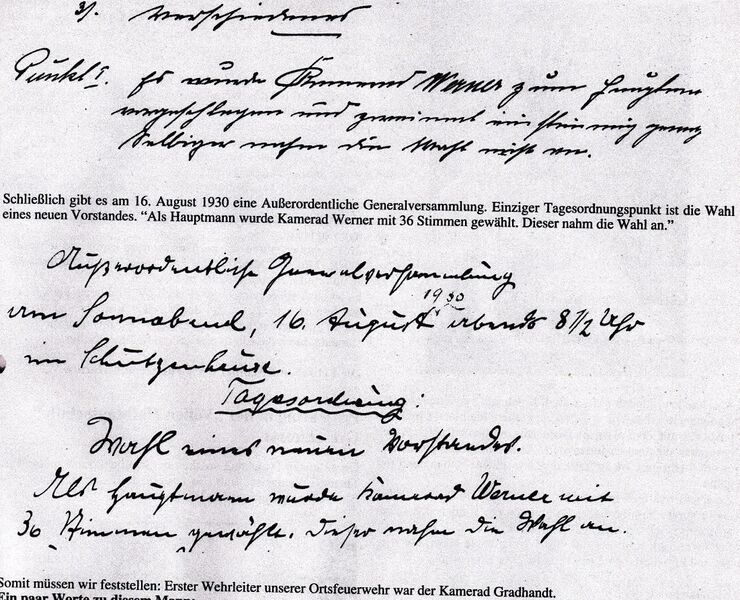 3). Verschiedenes
Punkt 1. Es wurde Kamerad Werner zum Hauptm
vorgeschlagen und zweimal einstimmig gew
Selbiger nahm die Wahl nicht an.
Schließlich gibt es am 16. August 1930 eine Außerordentliche Generalversammlung. Einziger Tagesordnungspunkt ist die Wahl
eines neuen Vorstandes. “Als Hauptmann wurde Kamerad Werner mit 36 Stimmen gewählt. Dieser nahm die Wahl an.”
Außerordentliche Generalversammlung
1930
am Sonnabend, 16. August abends 8 1/2 Uhr
im Schützenhause.
Tagesordnung:
Wahl eines neuen Vorstandes.
Als Hauptmann wurde Kamerad Werner mit
36 Stimmen gewählt. Dieser nahm die Wahl an.
Somit müssen wir feststellen: Erster Wehrleiter unserer Ortsfeuerwehr war der Kamerad Gradhandt.
Ein paar Worte zu diesem Mann